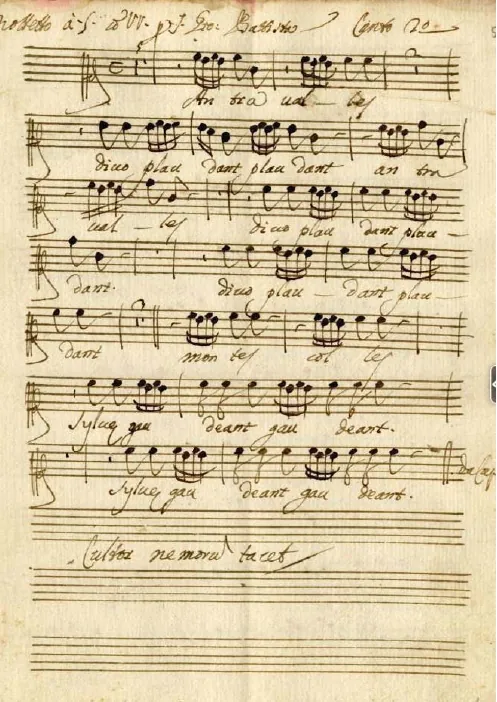 Mottetto à 5. Co VV. pr S. Gio: Battista Canto 2o
An tra val - les
divo plau dant plau dant an tra
val - les divo plau dant plau -
dant. divo plau - dant plau -
dant mon tes col les
sylvę gau deant gau deant.
sylvę gau deant gau deant. Da Cap
Cultor nemorū tacet